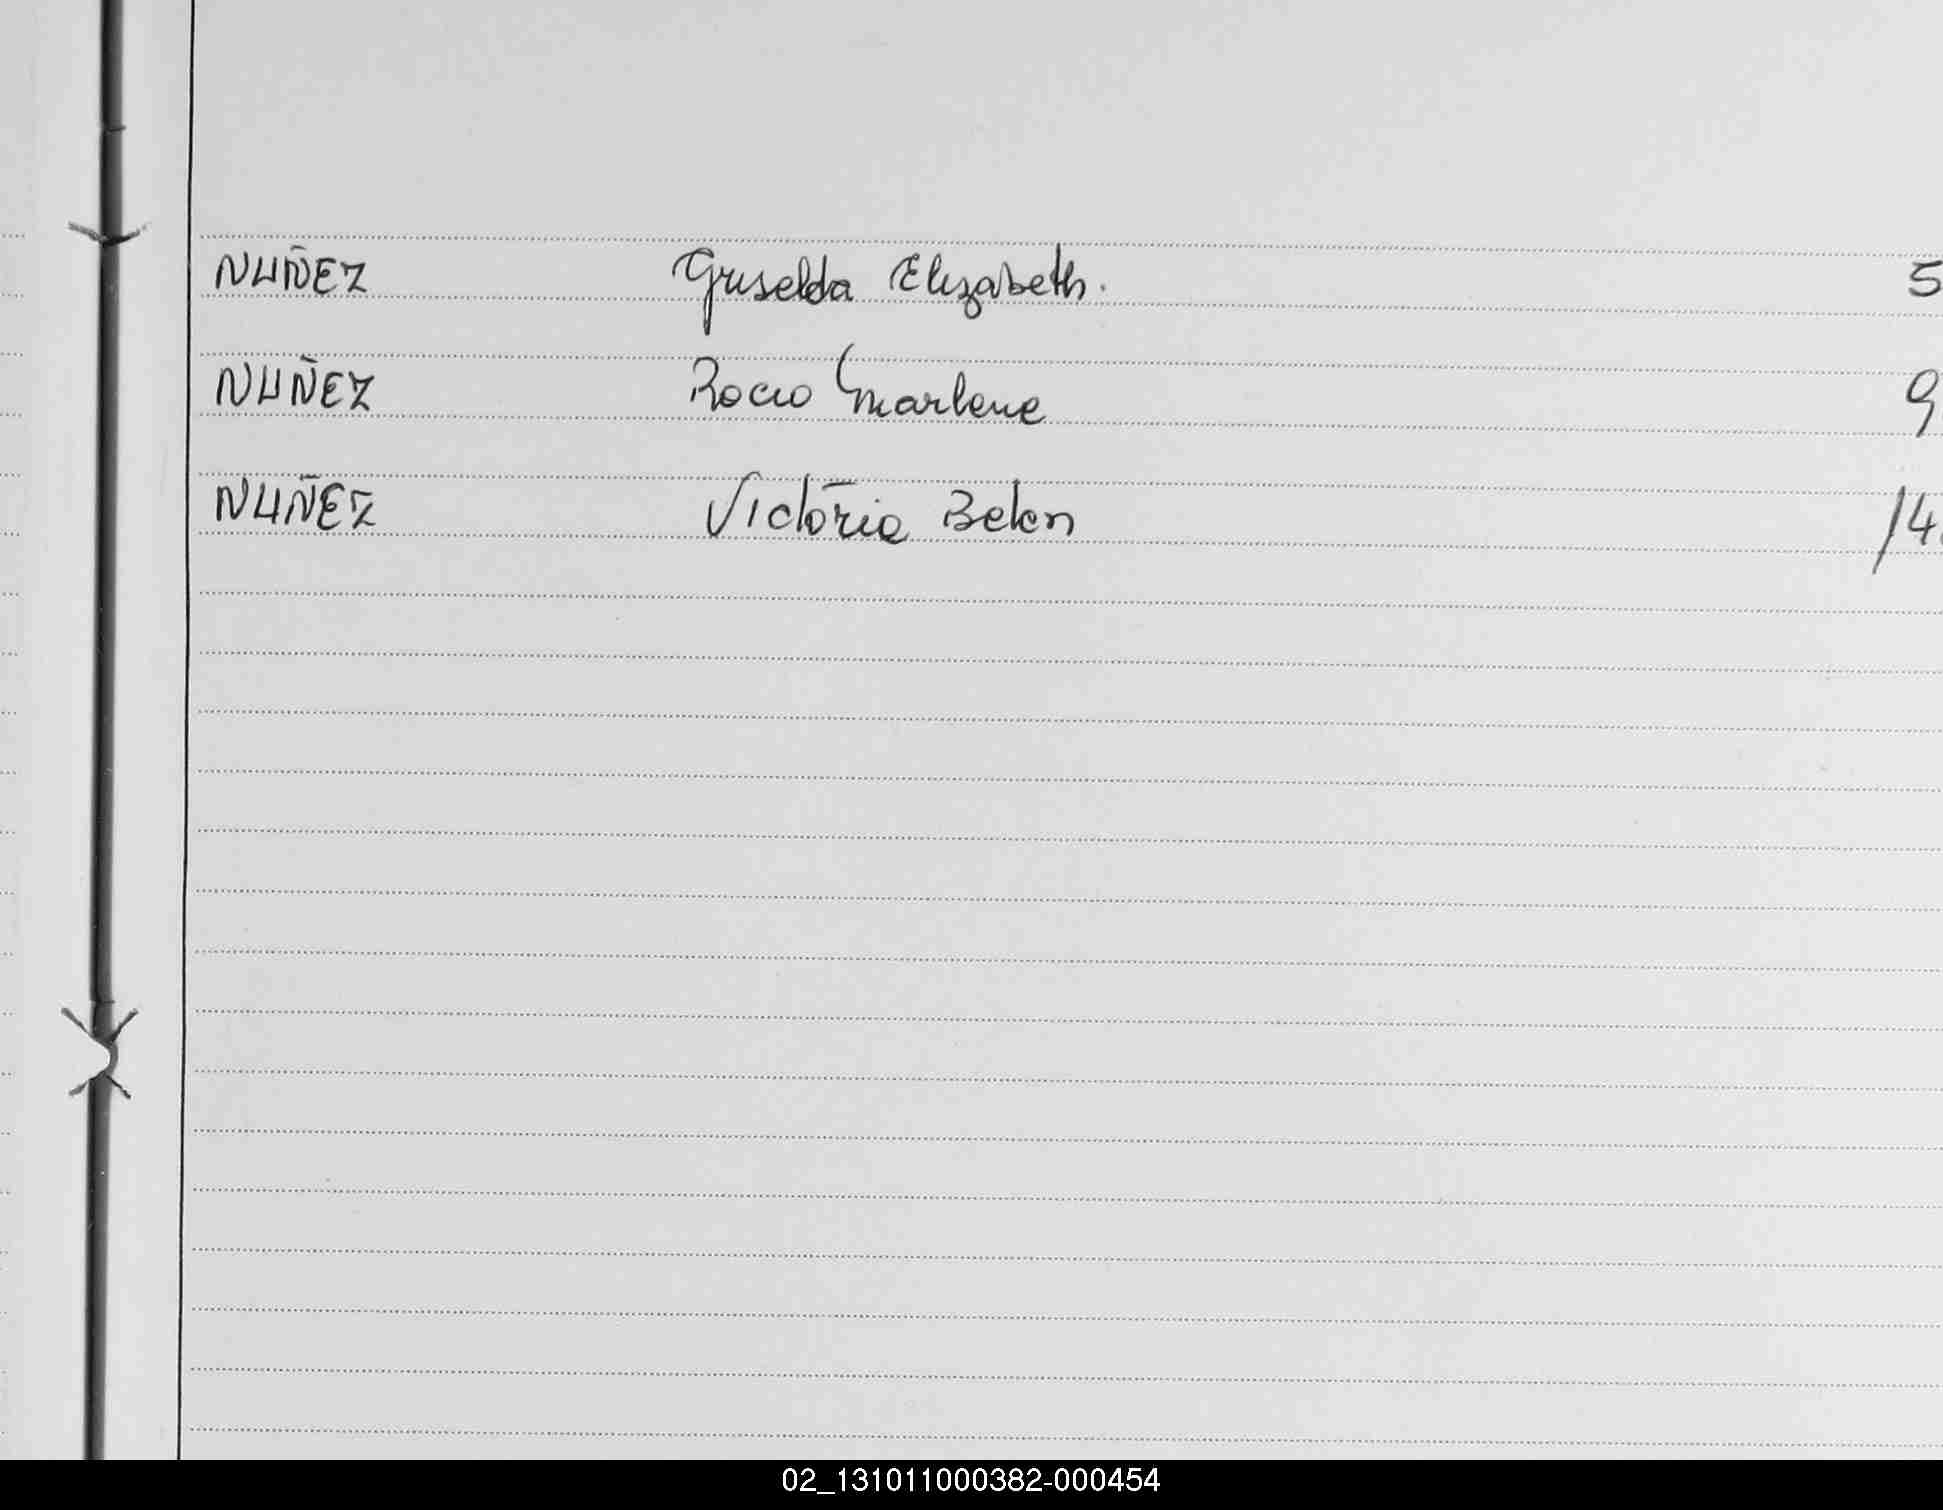 NUÑEZ Griselda Elizabeth. 5
NUÑEZ Rocio Marlene 9
NUÑEZ Victoria Belen 14.
02_131011000382-000454